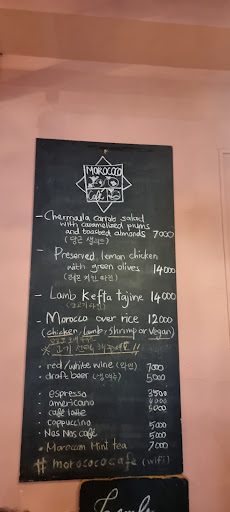 MOROCOCO
Café
- Chermaula carrots salad
with caramelized palms
and toasted almonds 7000
(당근 샐러드)
- Preserved lemon chicken
with green olives 14000
(레몬 치킨 타진)
- Lamb Kefta tajine 14000
- Morocco over rice 12000
(chicken, lamb, shrimp or vegan)
• red/white wine (와인) 7000
• draft beer (생맥주) 5000
• espresso 3500
• americano 4000
• café latte 5000
• cappuccino 5000
• Nos Nos café 5000
• Moroccan Mint tea 7000
# morococo cafe (wifi)